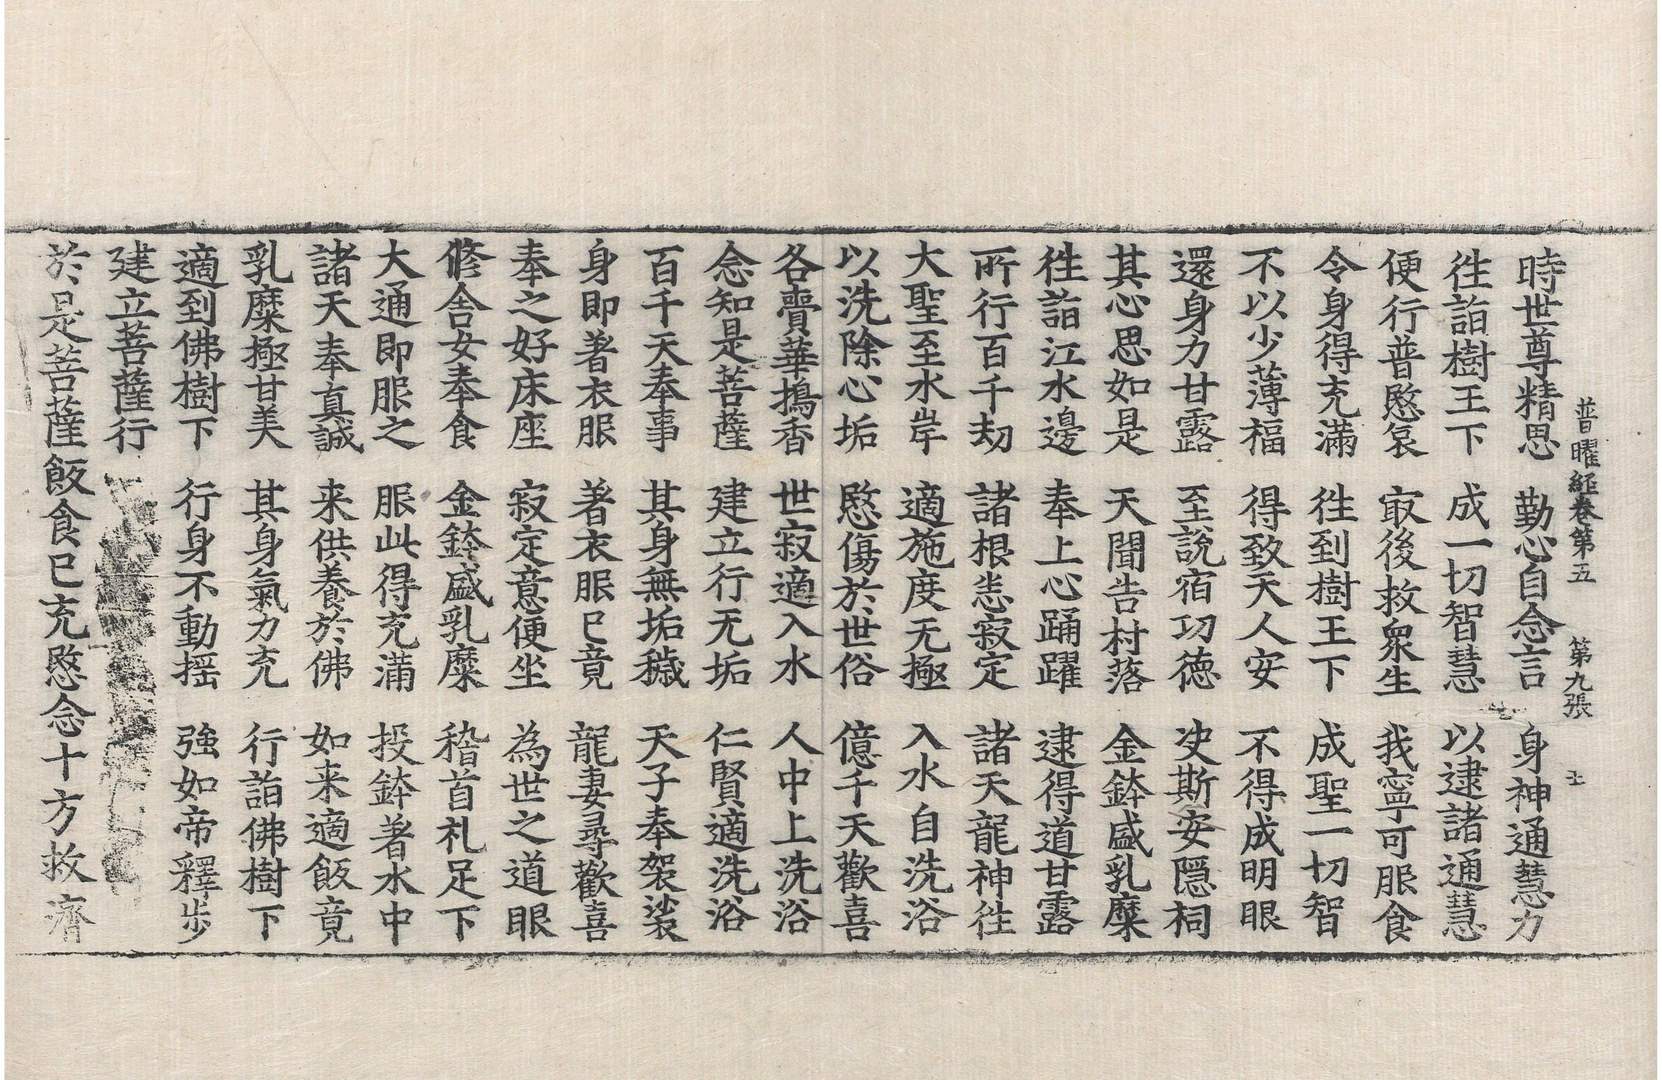 普曜経卷第五　第九張　士
時世尊精思　勤心自念言　身神通慧力
徃詣樹王下　成一切智慧　以逮諸通慧
便行普愍哀　㝡後救衆生　我寧可服食
令身得充滿　徃到樹王下　成聖一切智
不以少薄福　得致天人安　不得成明眼
還身力甘露　至說宿功德　決斯安隱祠
其心思如是　天聞告村落　金鉢盛乳糜
徃詣江水邊　奉上心踊躍　逮得道甘露
所行百千劫　諸根恙寂定　諸天龍神徃
大聖至水岸　適施度无極　入水自洗浴
以洗除心垢　愍傷於世俗　億千天歡喜
各賷華擣香　世寂適入水　人中上洗浴
念知是菩薩　建立行无垢　仁賢適洗浴
百千天奉事　其身無垢穢　天子奉袈裟
身即著衣服　著衣服已竟　龍妻尋歡喜
奉之好床座　寂定意便坐　為世之道眼
修舍女奉食　金鉢盛乳糜　稽首礼足下
大通即服之　服此得充滿　投鉢著水中
諸天奉真誠　来供養於佛　如来適飯竟
乳糜極甘美　其身氣力充　行詣佛樹下
適到佛樹下　行身不動揺　強如帝釋步
建立菩薩行
於是菩薩飯食已充愍念十方救濟